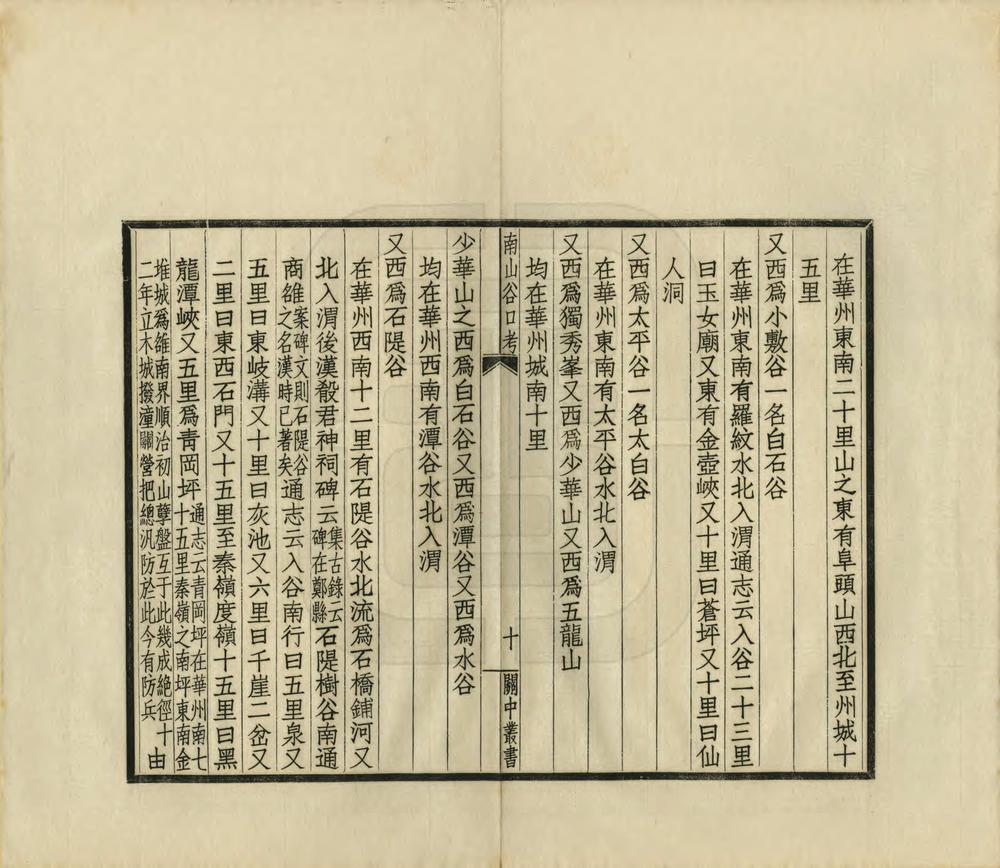 在華州東南二十里山之東有阜頭山西北至州城十
五里
又西爲小敷谷一名白石谷
在華州東南有羅紋水北入渭通志云入谷二十三里
曰玉女廟又東有金壺峽又十里曰蒼坪又十里曰仙
人洞
又西爲太平谷一名太白谷
在華州東南有太平谷水北入渭
又西爲獨秀峯又西爲少華山又西爲五龍山
均在華州城南十里
南山谷口考 十 關中叢書
少華山之西爲白石谷又西爲潭谷又西爲水谷
均在華州西南有潭谷水北入渭
又西爲石隄谷
在華州西南十二里有石隄谷水北流爲石橋鋪河又
北入渭後漢殽君神祠碑云集古錄云碑在鄭縣石隄樹谷南通
商雒案碑文則石隄谷之名漢時已著矣通志云入谷南行曰五里泉又
五里曰東岐溝又十里曰灰池又六里曰千崖二岔又
二里曰東西石門又十五里至秦嶺度嶺十五里曰黑
龍潭峽又五里爲靑岡坪通志云青岡坪在華州南七十五里秦嶺之南坪東南金
堆城爲雒南界順治初山孽盤互于此幾成絶徑十二年立木城撥潼關營把總汛防於此今有防兵由